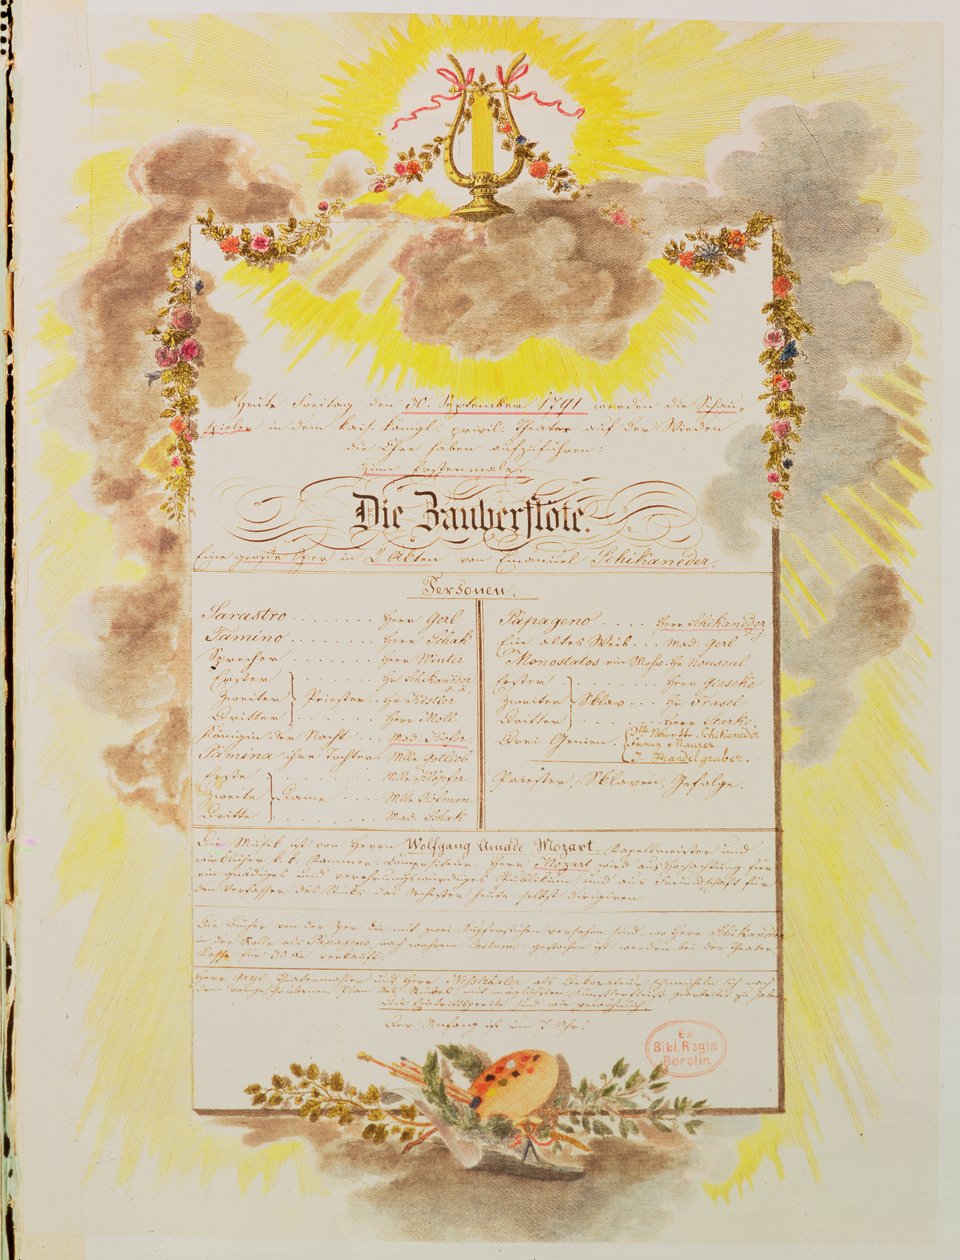 Heute Freitag den 30. September 1791 werden die Schau-
spieler in dem kais. königl. privil. Theater auf der Wieden
die Ehre haben aufzuführen:
Zum Erstenmale.
Die Zauberflöte.
Eine große Oper in 2 Akten von Emanuel Schikaneder.
Personen.
Sarastro ........ Herr Gerl
Tamino ........ Herr Schak
Sprecher ...... Herr Winter
Erster Hr Schikaneder d. ä.
Zweiter Priester Hr Kistler
Dritter Herr Moll
Königin der Nacht .. Mad. Hofer
Pamina ihre Tochter Mlle Gotlieb
Erste Mlle Klöpfer
Zweite Dame .... Mlle Hofman
Dritte Mad. Schak
Papageno ..... Herr Schikaneder d. j.
Ein altes Weib ... Mad. Gerl
Monostatos ein Mohr. Hr Nouseul
Erster ........ Herr Gieseke
Zweiter Sklav ... Hr Frasel
Dritter ........ Herr Starke.
Drei Genien. Schikaneder
Maurer
Handelgruber.
Priester, Sklaven, Gefolge.
Die Musik ist von Herrn Wolfgang Amade Mozart, Kapellmeister und
wirklicher k. k. Kammer-Compositeur. Herr Mozart wird aus Hochachtung für
ein gnädiges und verehrungswürdiges Publikum, und aus Freundschaft für
den Verfasser des Stücks das Orchester heute selbst dirigiren.
Die Bücher von der Oper die mit zwei Kupferstichen versehen sind, wo Herr Schikaneder
in der Rolle als Papageno nach wahrem Costum gestochen ist werden bei der Theater
Kasse für 30 xr verkauft.
Herr Gayl Theatermahler und Herr Neßthaler als Dekorateur schmeicheln sich nach
dem vorgeschriebenen Plan des Stücks mit möglichsten Künstlerfleiß gearbeitet zu haben
Die Eintrittspreise sind wie gewöhnlich.
Der Anfang ist um 7 Uhr.
Ex
Bibl. Regia
Berolin.